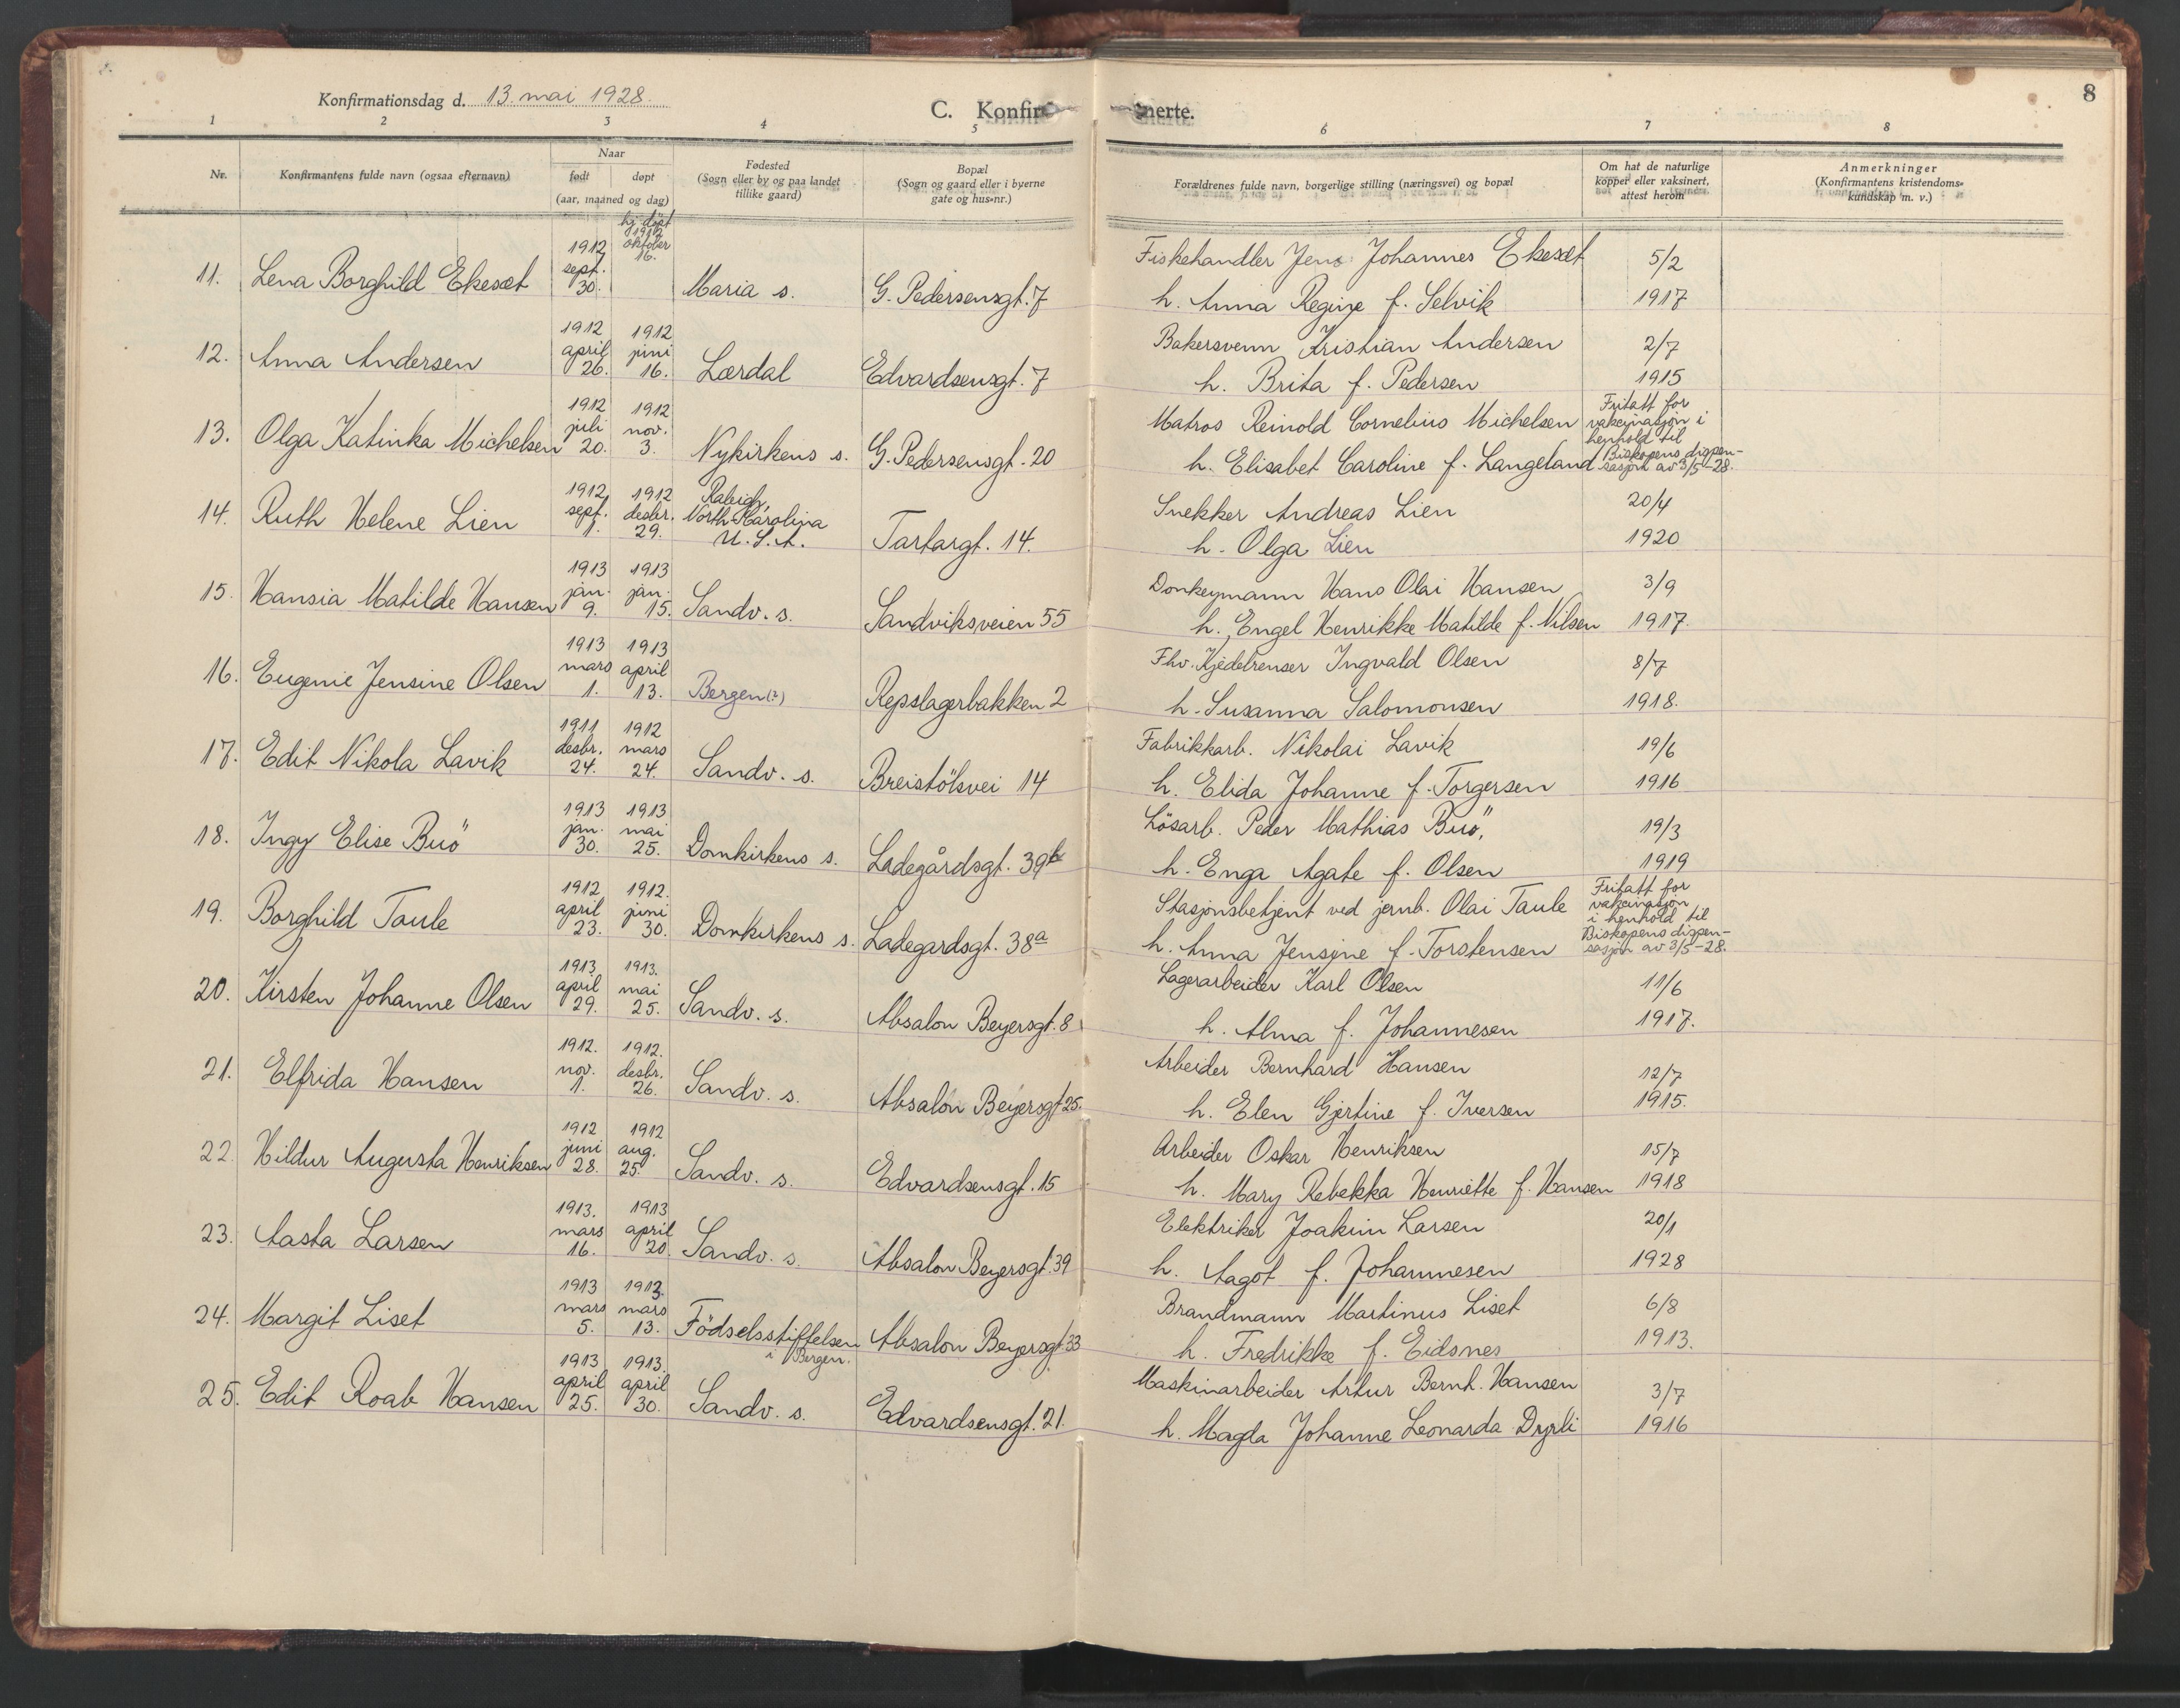 Konfirmationsdag d. 13. mai 1928.
C. Konfir
nerte.
8
1 2 3 4 5 6 7 8
Nr.
Konfirmantens fulde navn (ogsaa efternavn)
Naar
født døpt
(aar, maaned og dag)
Fødested
(Sogn eller by og paa landet
tillike gaard)
Bopæl
(Sogn og gaard eller i byerne
gate og hus=nr.)
Forældrenes fulde navn, borgerlige stilling (næringsvei) og bopæl
Om hat de naturlige
kopper eller vaksinert,
attest herom
Anmerkninger
(Konfirmantens kristendoms=
kundskap m. v.)
hj. døpt
1912 1912 oktober Fiskehandler Jens Johannes Ekeset 5/2
11. Lena Borghild Ekeset sept. 30. 16. Maria s. G. Pedersensgt. 7 h. Anna Regine f. Selvik 1917
1912 1912 Bakersvenn Kristian Andersen 2/7
12. Anna Andersen april 26. juni 16. Lærdal Edvardsensgt. 7 h. Brita f. Pedersen 1915
1912 1912 Matros Reinold Cornelius Michelsen Fritatt for
vakcinasjon i
henhold til
13. Olga Katinka Michelsen juli 20. nov. 3. Nykirkens s. G. Pedersensgt. 20 h. Elisabet Caroline f. Langeland Biskopens dispen-
sasjon av 3/5-28.
1912 1912 Raleigh Snekker Andreas Lien 20/4
14. Ruth Helene Lien sept. 1. desbr. 29. North-Carolina
U. S. A. Tartargt. 14. h. Olga Lien 1920
1913 1913 Donkeymann Hans Olai Hansen 3/9
15. Hansia Matilde Hansen jan. 9. jan. 15. Sandv. s. Sandviksveien 55 h. Engel Henrikke Matilde f. Nilsen 1917.
1913 1913 Fhv. Kjedelrenser Ingvald Olsen 8/7
16. Eugenie Jensine Olsen mars 1. april 13. Bergen (?) Repslagerbakken 2 h. Susanna Salomonsen 1918.
1911 1912 Fabrikkarb. Nikolai Lavik 19/6
17. Edit Nikola Lavik desbr. 24. mars 24. Sandv. s. Breistölsvei 14 h. Elida Johanne f. Torgersen 1916
1913 1913 Lösarb. Peder Mathias Buö, 19/3
18. Ingy Elise Buö jan. 30. mai 25. Domkirkens s. Ladegårdsgt. 39b h. Enga Agate f. Olsen 1919
1912 1912. Stasjonsbetjent ved jernb. Olai Taule Fritatt for
vakcinasjon
i henhold til
19. Borghild Taule april 23. juni 30. Domkirkens s. Ladegardsgt. 38a h. Anna Jensine f. Torstensen Biskopens dispen-
sasjon av 3/5-28.
1913 1913. Lagerarbeider Karl Olsen 11/6
20. Kirsten Johanne Olsen april 29. mai 25. Sandv. s. Absalon Beyersgt. 8 h. Alma f. Johannesen 1917.
1912. 1912. Arbeider Bernhard Hansen 12/7
21. Elfrida Hansen nov. 1. desbr. 26. Sandv. s. Absalon Beyersgt 25. h. Elen Gjertine f. Iversen 1915.
1912 1912 Arbeider Oskar Henriksen 15/7
22. Hildur Augusta Henriksen juni 28. aug. 25. Sandv. s. Edvardsensgt. 15 h. Mary Rebekka Henriette f. Hansen 1918
1913. 1913 Elektriker Joakim Larsen 20/1
23. Aasta Larsen mars 16. april 20. Sandv. s. Absalon Beyersgt. 39 h. Aagot f. Johannesen 1928
1913 1913. Brandmann Martinus Liset 6/8
24. Margit Liset mars 5. mars 13. Födselsstiftelsen
i Bergen. Absalon Beyersgt. 33 h. Fredrikke f. Eidsnes 1913.
1913 1913. Maskinarbeider Artur Bernh. Hansen 3/7
25. Edit Roab Hansen april 25. april 30. Sandv. s. Edvardsensgt. 21. h. Magda Johanne Leonarda Dyrli 1916